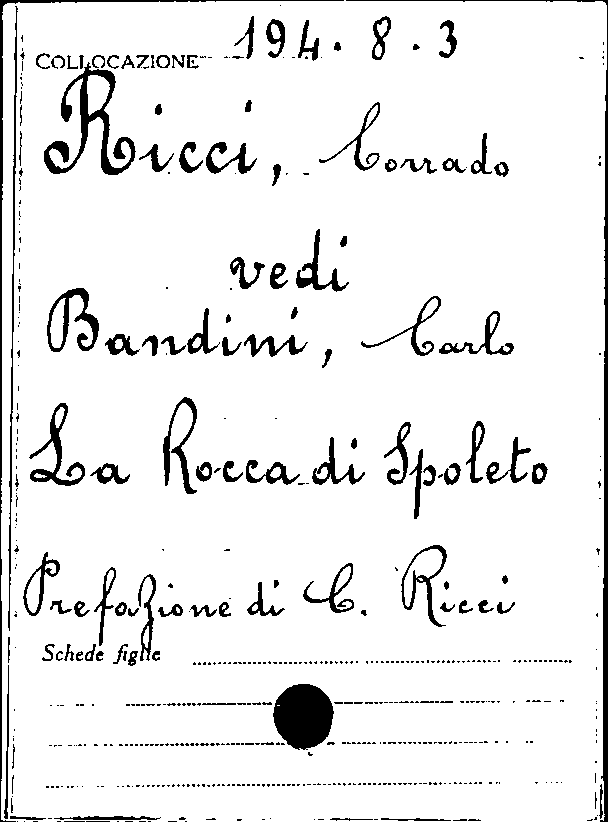 COLLOCAZIONE 194.8.3
Ricci, Corrado
vedi
Bandini, Carlo
La Rocca di Spoleto
Prefazione di C. Ricci
Schede figlie